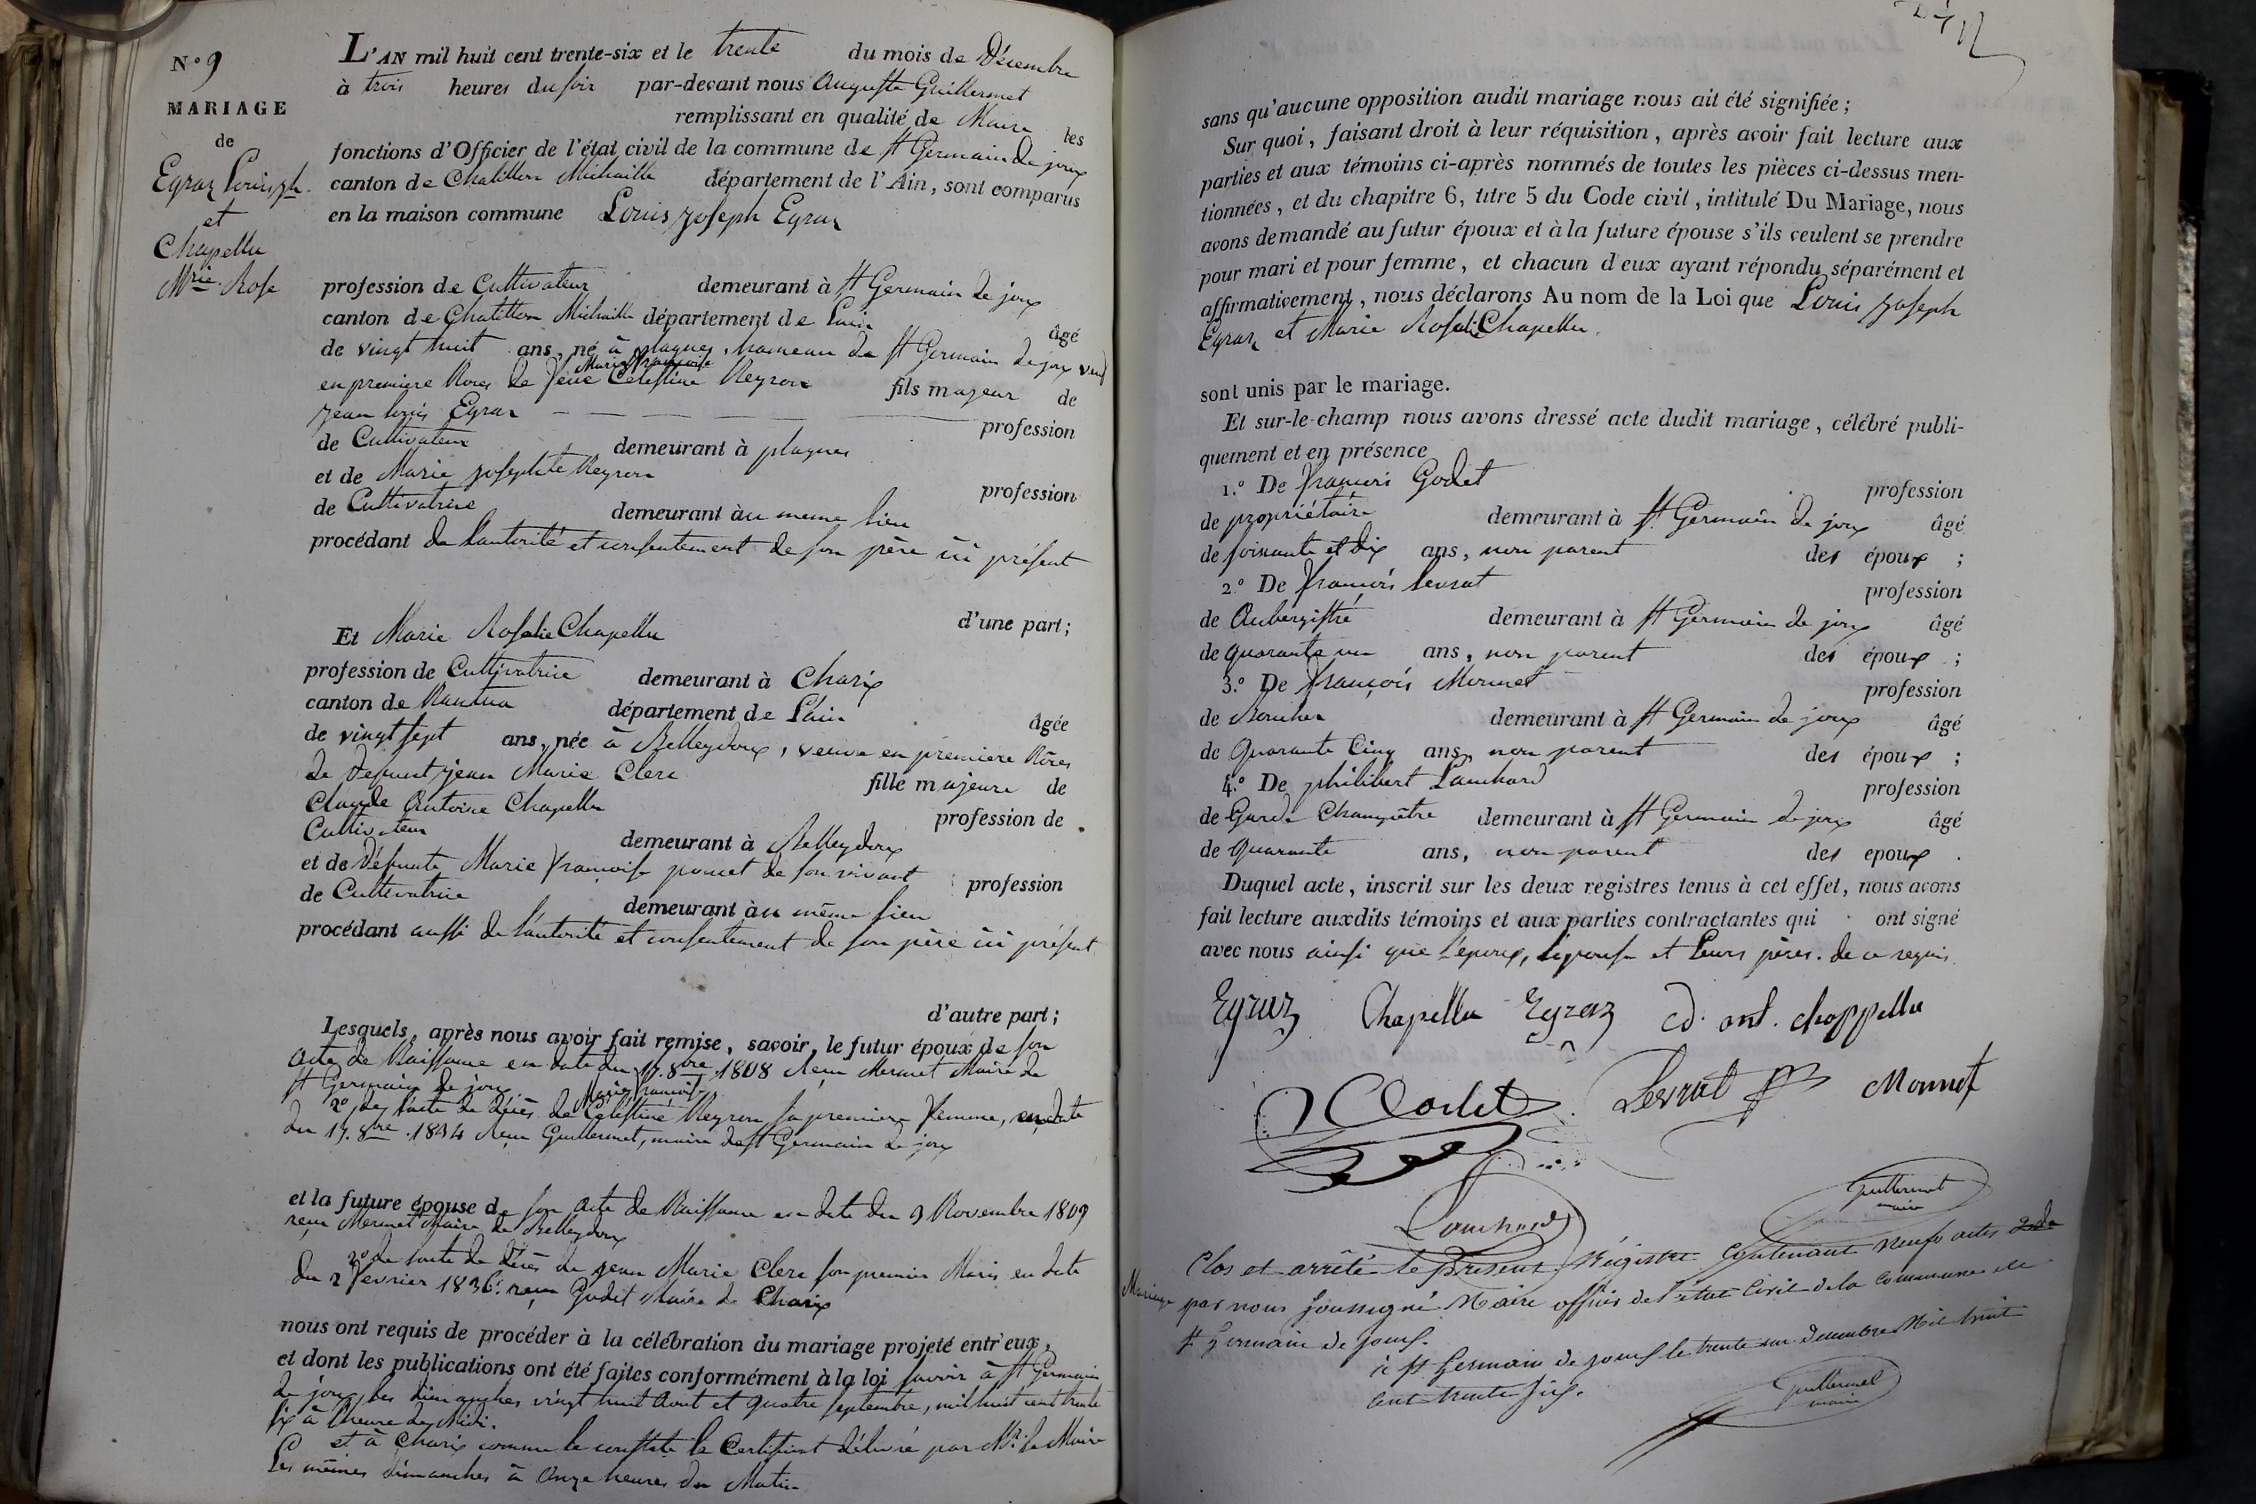 N.° 9
MARIAGE
de
Egraz Louis Jph.
et
Chapellu
Mrie Rose
L'AN mil huit cent trente-six et le trente du mois de Décembre
à trois heures du soir par-devant nous Auguste Guillermet
remplissant en qualité de Maire les
fonctions d'Officier de l'état civil de la commune de St Germain de joux
canton de Chatillon Michaille département de l'Ain, sont comparus
en la maison commune Louis Joseph Egraz
profession de Cultivateur demeurant à St Germain de joux
canton de Chatillon Michaille département de Lain âgé
de vingt huit ans, né à plagnes, hameau de St Germain de joux veuf
Marie françoise
en premiere Noces de feue Celestine Reyron fils majeur de
Jean louis Egraz profession
de Cultivateur demeurant à plagnes
et de Marie Josephte Reyron profession
de Cultivatrice demeurant au meme lieu
procédant de l'autorité et consentement de son père ici présent
d'une part;
Et Marie Rosalie Chapellu
profession de Cultivatrice demeurant à Charix
canton de Nantua département de L'ain âgée
de vingt sept ans, née à Belleydoux, veuve en premiere Nôces
de Defunt jean Marie Clerc fille majeure de
Claude Antoine Chapellu profession de
Cultivateur demeurant à Belleydoux
et de Défunte Marie françoise poncet de son vivant profession
de Cultivatrice demeurant au même lieu
procédant aussi de l'autorité et consentement de son père ici présent
d'autre part;
Lesquels, après nous avoir fait remise, savoir, le futur époux de son
acte de Naissance en date du 17. 8bre 1808 reçu Mermet Maire de
St Germain de joux
Marie françoise
2° de l'acte de décès de Celestine Reyron sa premiere femme, en date
du 19. 8bre 1834 reçu Guillermet, maire de St Germain de joux
et la future épouse de son acte de Naissance en date du 9 Novembre 1809
reçu Mermet Maire de Belleydoux
2° de l'acte de décès de jean Marie Clerc son premier Maris en date
du 2 fevrier 1836. reçu Godet Maire de Charix
nous ont requis de procéder à la célébration du mariage projeté entr'eux,
et dont les publications ont été faites conformément à la loi savoir à St Germain
de joux, les dimanches vingt huit Aout et quatre septembre, mil huit cent trente
six à l'heure de Midi.
et à Charix comme le constate le Certificat délivré par Mr. le Maire
Les mêmes dimanches à Onze heures du Matin
sans qu'aucune opposition audit mariage nous ait été signifiée;
Sur quoi, faisant droit à leur réquisition, après avoir fait lecture aux
parties et aux témoins ci-après nommés de toutes les pièces ci-dessus men-
tionnées, et du chapitre 6, titre 5 du Code civil, intitulé Du Mariage, nous
avons demandé au futur époux et à la future épouse s'ils veulent se prendre
pour mari et pour femme, et chacun d'eux ayant répondu séparément et
affirmativement, nous déclarons Au nom de la Loi que Louis Joseph
Egraz et Marie Rosalie Chapellu.
sont unis par le mariage.
Et sur-le-champ nous avons dressé acte dudit mariage, célébré publi-
quement et en présence
1.° De françois Godet profession
de propriétaire demeurant à St Germain de joux âgé
de soixante et dix ans, non parent des époux;
2.° De françois Levrat profession
de Aubergiste demeurant à St Germain de joux âgé
de quarante un ans, non parent des époux;
3.° De françois Monnet profession
de Boucher demeurant à St Germain de joux âgé
de Quarante Cinq ans, non parent des époux;
4.° De philibert Lanchard profession
de Garde Champêtre demeurant à St Germain de joux âgé
de Quarante ans, non parent des epoux.
Duquel acte, inscrit sur les deux registres tenus à cet effet, nous avons
fait lecture auxdits témoins et aux parties contractantes qui ont signé
avec nous ainsi que l'époux, l'épouse et leurs pères. de ce requis
Egraz Chapellu Egraz Cd. ant. chappellu
Godet Levrat Monnet
Lanchard
Guillermet
maire
Clos et arrêté le présent Régistre Contenant neufs actes de
Mariage par nous soussigné Maire officier de l'état Civil de la commune de
St germain de joux.
à St Germain de joux le trente un decembre Mil huit
cent trente six.
Guillermet
maire